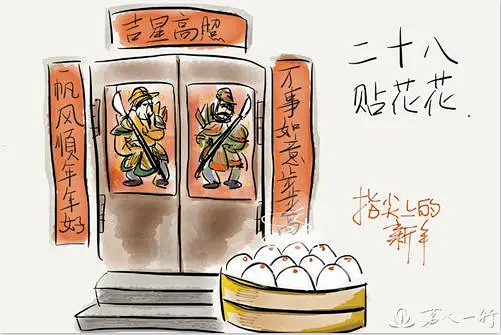 吉星高照
帆风順年年好
万事如意步步高
二十八
贴花花.
指尖上的
新年